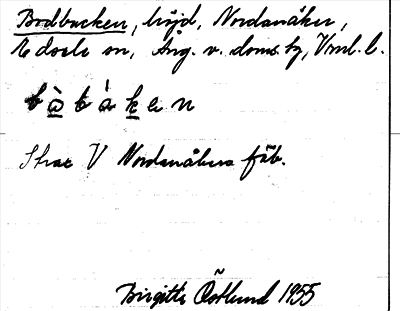 Bodbacken, höjd, Nordanåker,
Edsele sn, Ång. v. doms. tg, Vnrl. l.
b à t á k e n
Strax V Nordanåkers fäb.
Birgitta Östlund 1955